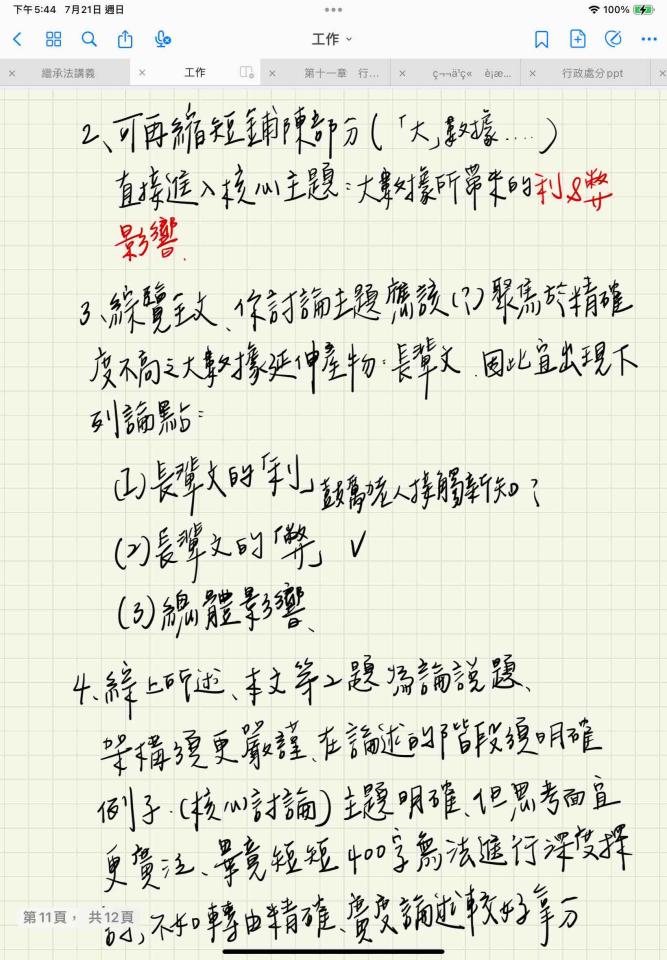 下午5:44 7月21日 週日
100%
工作
繼承法講義
工作
第十一章 行...
ç¬¬ä¹ç« è¡æ...
行政處分ppt
2、可再縮短鋪陳部分(「大」數據....)
直接進入核心主題:大數據所帶來的利&弊
影響.
3、綜覽全文、你討論主題應該(?)聚焦於精確
度不高之大數據延伸產物:長輩文.因此宜出現下
列論點:
(1)長輩文的「利」鼓勵老人接觸新知?
(2)長輩文的「弊」 ✓
(3)總體影響、
4、綜上所述、本文第2題為論說題、
架構須更嚴謹、在論述的階段須明確
例子.(核心討論)主題明確、但思考面宜
更廣泛、畢竟短短400字無法進行深度探
討,不如轉由精確、廣度論述較好拿分
第11頁, 共12頁